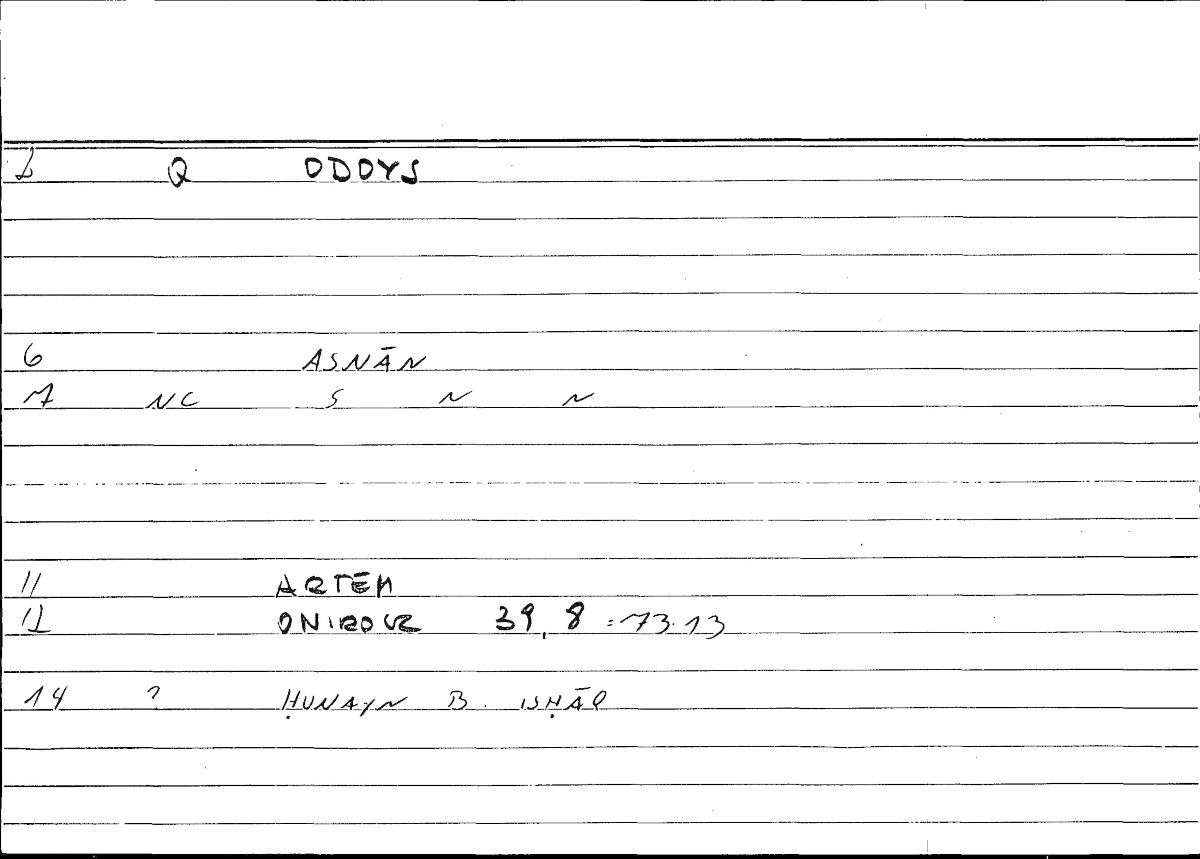 1 Q ODOYS
6 ASNĀN
7 NC S N N
11 ARTĒM
12 ONIROCR 39,8 = 73.13
14 ? ḤUNAYN B. ISḤĀQ